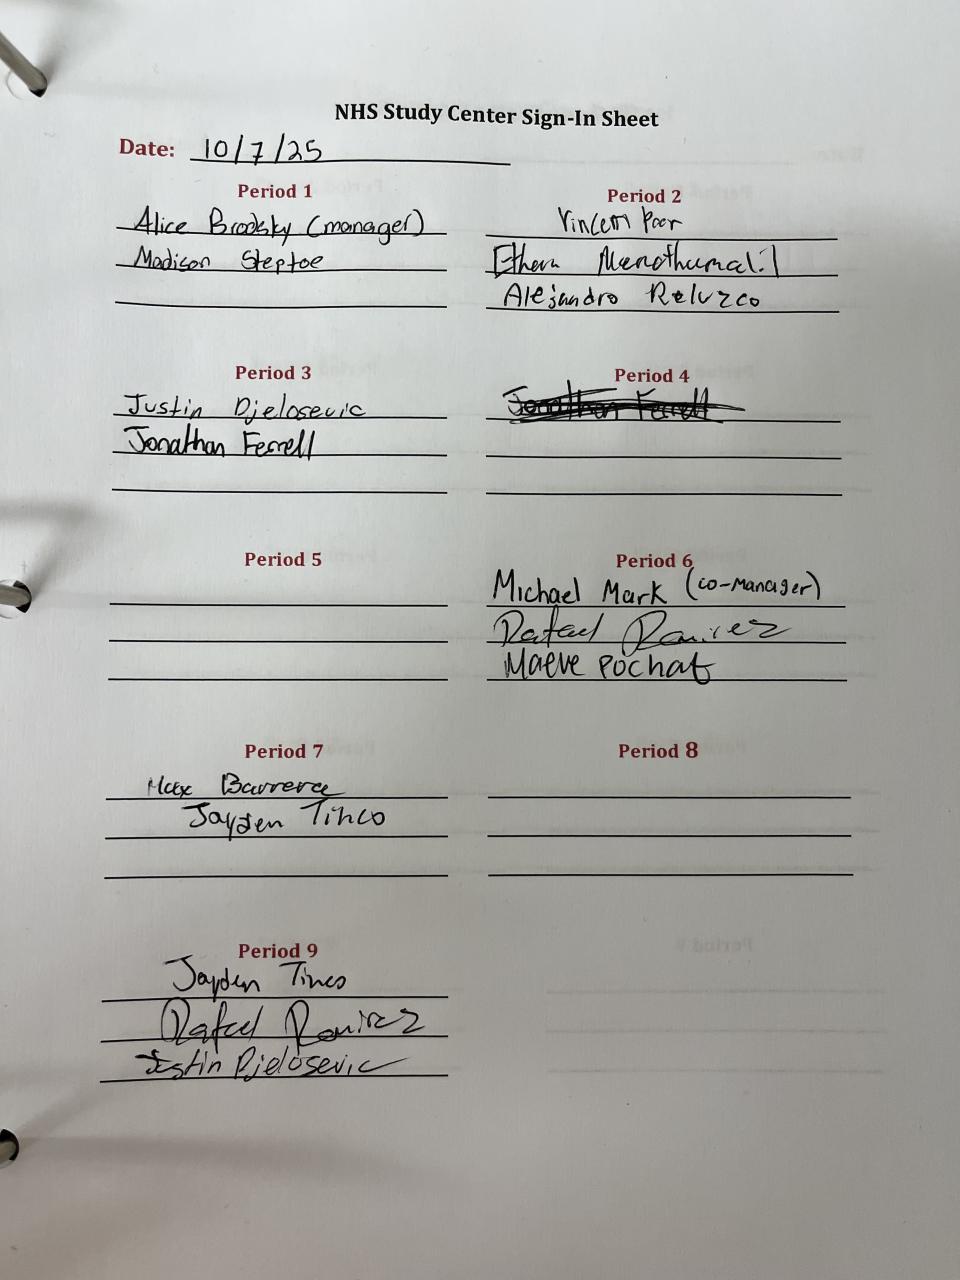 NHS Study Center Sign-In Sheet
Date: 10/7/25
Period 1
Alice Brodsky (manager)
Madison Steptoe
Period 2
Vincent Poor
Ethan Menothumalil
Alejandro Reluzco
Period 3
Justin Djelosevic
Jonathan Ferrell
Period 4
Jonathan Ferrell
Period 5
Period 6
Michael Mark (co-manager)
Rafael Ramirez
Maeve Pochat
Period 7
Max Barrera
Jayden Tinco
Period 8
Period 9
Jayden Tinco
Rafael Ramirez
Justin Djelosevic